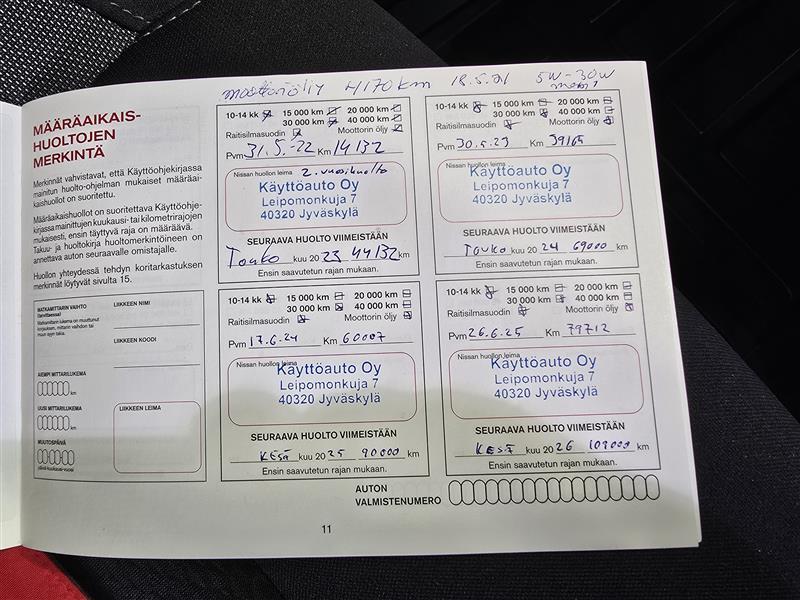 moottoriöljy 4170 km 18.5.21 5W-30W
MÄÄRÄAIKAIS-
HUOLTOJEN
MERKINTÄ
Merkinnät vahvistavat, että Käyttöohjekirjassa
mainitun huolto-ohjelman mukaiset määräai-
kaishuollot on suoritettu.
Määräaikaishuollot on suoritettava Käyttöohje-
kirjassa mainittujen kuukausi- tai kilometrirajojen
mukaisesti, ensin täyttyvä raja on määräävä.
Takuu- ja huoltokirja huoltomerkintöineen on
annettava auton seuraavalle omistajalle.
Huollon yhteydessä tehdyn koritarkastuksen
merkinnät löytyvät sivulta 15.
MATKAMITTARIN VAIHTO
(tarvittaessa)
Matkamittarin lukema on muuttunut
korjauksen, mittarin vaihdon tai
muun syyn takia.
AIEMPI MITTARILUKEMA
km
UUSI MITTARILUKEMA
km
MUUTOSPÄIVÄ
päivä-kuukausi-vuosi
LIIKKEEN NIMI
LIIKKEEN KOODI
LIIKKEEN LEIMA
10-14 kk 15 000 km 20 000 km
30 000 km 40 000 km
Raitisilmasuodin Moottorin öljy
Pvm 31.5.-22 Km 14132
Nissan huollon leima 2. vuosihuolto
Käyttöauto Oy
Leipomonkuja 7
40320 Jyväskylä
SEURAAVA HUOLTO VIIMEISTÄÄN
Touko kuu 20 23 44132 km
Ensin saavutetun rajan mukaan.
10-14 kk 15 000 km 20 000 km
30 000 km 40 000 km
Raitisilmasuodin Moottorin öljy
Pvm 30.5.23 Km 39165
Nissan huollon leima
Käyttöauto Oy
Leipomonkuja 7
40320 Jyväskylä
SEURAAVA HUOLTO VIIMEISTÄÄN
Touko kuu 20 24 69000 km
Ensin saavutetun rajan mukaan.
10-14 kk 15 000 km 20 000 km
30 000 km 40 000 km
Raitisilmasuodin Moottorin öljy
Pvm 17.6.24 Km 60007
Nissan huollon leima
Käyttöauto Oy
Leipomonkuja 7
40320 Jyväskylä
SEURAAVA HUOLTO VIIMEISTÄÄN
KESÄ kuu 20 25 90000 km
Ensin saavutetun rajan mukaan.
10-14 kk 15 000 km 20 000 km
30 000 km 40 000 km
Raitisilmasuodin Moottorin öljy
Pvm 26.6.25 Km 79712
Nissan huollon leima
Käyttöauto Oy
Leipomonkuja 7
40320 Jyväskylä
SEURAAVA HUOLTO VIIMEISTÄÄN
KESÄ kuu 20 26 km
Ensin saavutetun rajan mukaan.
AUTON
VALMISTENUMERO
11